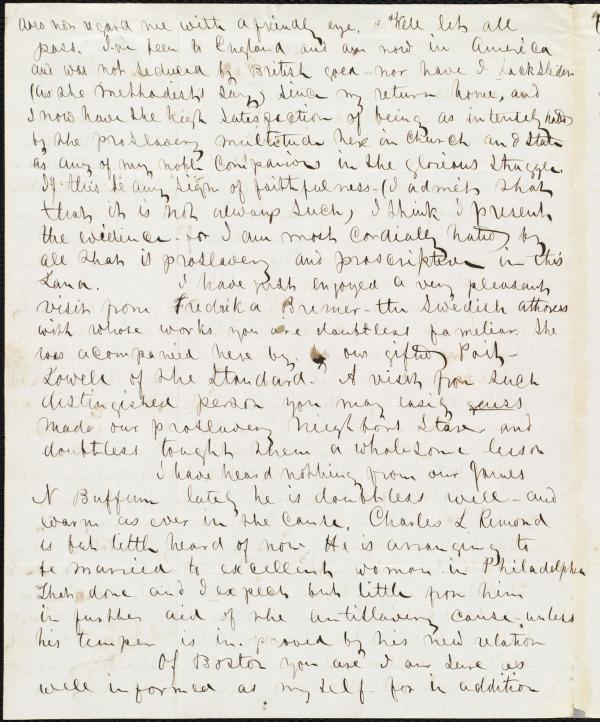 does not regard me with a friendly eye. Well let all
pass. I've been to England and am now in America
and was not seduced by British gold - nor have I backsliden
(as the Methodists say) since my return home, and
I now have the high satisfaction of being as intensely hated
by the proslavery multitude here in Church and State
as any of my noble companions in the glorious struggle.
If this be any sign of faithfulness - (I admit that
that it is not always such,) I think I present
the evidence - for I am most cordially hated by
all that is proslavery and proscriptive in this
Land. I have just enjoyed a very pleasant
visit from Fredrika Bremer - the Swedish athoress
with whose works you are doubtless familiar. She
was acompanied here by our gifted Poit -
Lowell of the Standard." A visit from such
distingished person you may easily guess
made our proslavery neighbors stare and
doubtless tought them a wholesome lesson
I have heard nothing from our James
N Buffum lately he is doubtless well - and
warm as ever in the cause. Charles L Remond
is but little heard of now. He is arranging to
be married to excellent woman in Philadelphia
That done and I expect but little from him
in further aid of the antislavery cause - unless
his temper is improoved by his new relation
Of Boston you are I am sure as
well informed as my self - for in addition